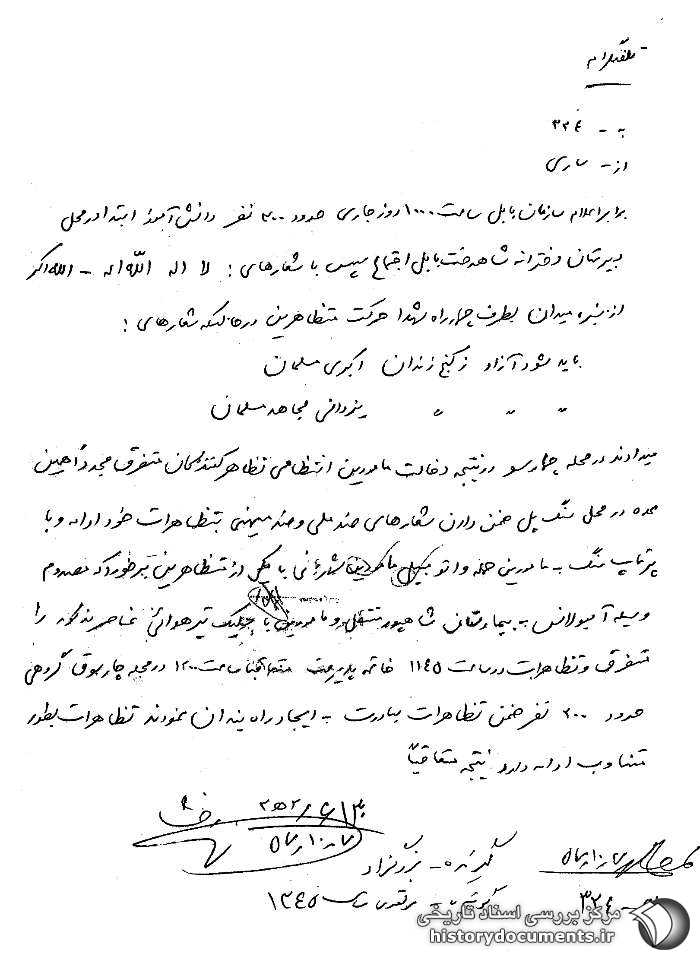 تلفنگرام
به - ۳۲۴
از - ساری
برابر اعلام سازمان بابل ساعت ۱۰۰۰ روز جاری حدود ۳۰۰ نفر دانش آموز ابتدا در محل
دبیرستان دخترانه شاهدخت بابل اجتماع سپس با شعارهای : لا اله الا الله - الله اکبر
از سبزه میدان بطرف چهارراه شهدا حرکت متظاهرین در حالیکه شعارهای :
باید شود آزاد ز کنج زندان اکبری مسلمان
" " " یزدانی مجاهد مسلمان
میدادند در محله چهارسو در نتیجه دخالت مامورین انتظامی تظاهر کنندگان متفرق مجدداً همین
عده در محل سنگ پل ضمن دادن شعارهای ضد ملی و ضد میهنی بتظاهرات خود ادامه و با
پرتاپ سنگ به مامورین حمله و اتومبیل شهربانی با یکی از متظاهرین برخورد که مصدوم
وسیله آمبولانس به بیمارستان شاهپور منتقل و مامورین با شلیک تیر هوائی عناصر مذکور را
متفرق و تظاهرات در ساعت ۱۱۴۵ خاتمه پذیرفت متعاقبا ساعت ۱۲۰۰ در محله چارسوق گروهی
حدود ۲۰۰ نفر ضمن تظاهرات مبادرت به ایجاد راه بندان نمودند تظاهرات بطور
متناوب ادامه دارد نتیجه متعاقباً
گیرنده - بزرگزاد
ساعت ۱۳۴۵
۳۲۴
مرکز بررسی اسناد تاریخی
historydocuments.ir